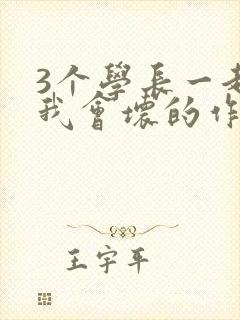 3个學長一起
我會壞的作
王宇平